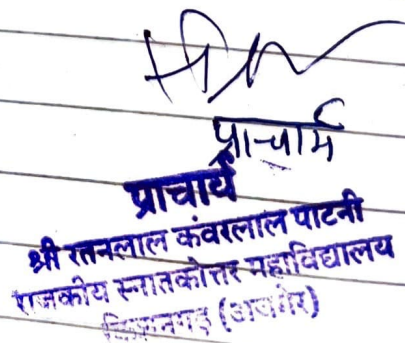 प्राचार्य
प्राचार्य
श्री रतनलाल कंवरलाल पाटनी
राजकीय स्नातकोत्तर महाविद्यालय
किशनगढ़ (अजमेर)